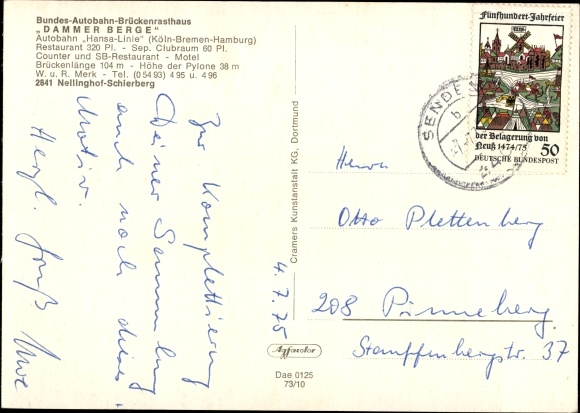 Bundes-Autobahn-Brückenrasthaus
„DAMMER BERGE“
Autobahn „Hansa-Linie“ (Köln-Bremen-Hamburg)
Restaurant 320 Pl. - Sep. Clubraum 60 Pl.
Counter und SB-Restaurant - Motel
Brückenlänge 104 m - Höhe der Pylone 38 m
W. u. R. Merk - Tel. (0 54 93) 4 95 u. 4 96
2841 Nellinghof-Schierberg
Zur Komplettierung
Deiner Sammlung
auch noch dieses
Motiv.
Herzl. Gruß Uwe
4.7.75
Cramers Kunstanstalt KG, Dortmund
Fünfhundert-Jahrfeier
der Belagerung von
Neuß 1474/75
50
DEUTSCHE BUNDESPOST
SENDEN
b
Herrn
Otto Plettenberg
208 Pinneberg
Stauffenbergstr. 37
Agfacolor
Dae 0125
73/10